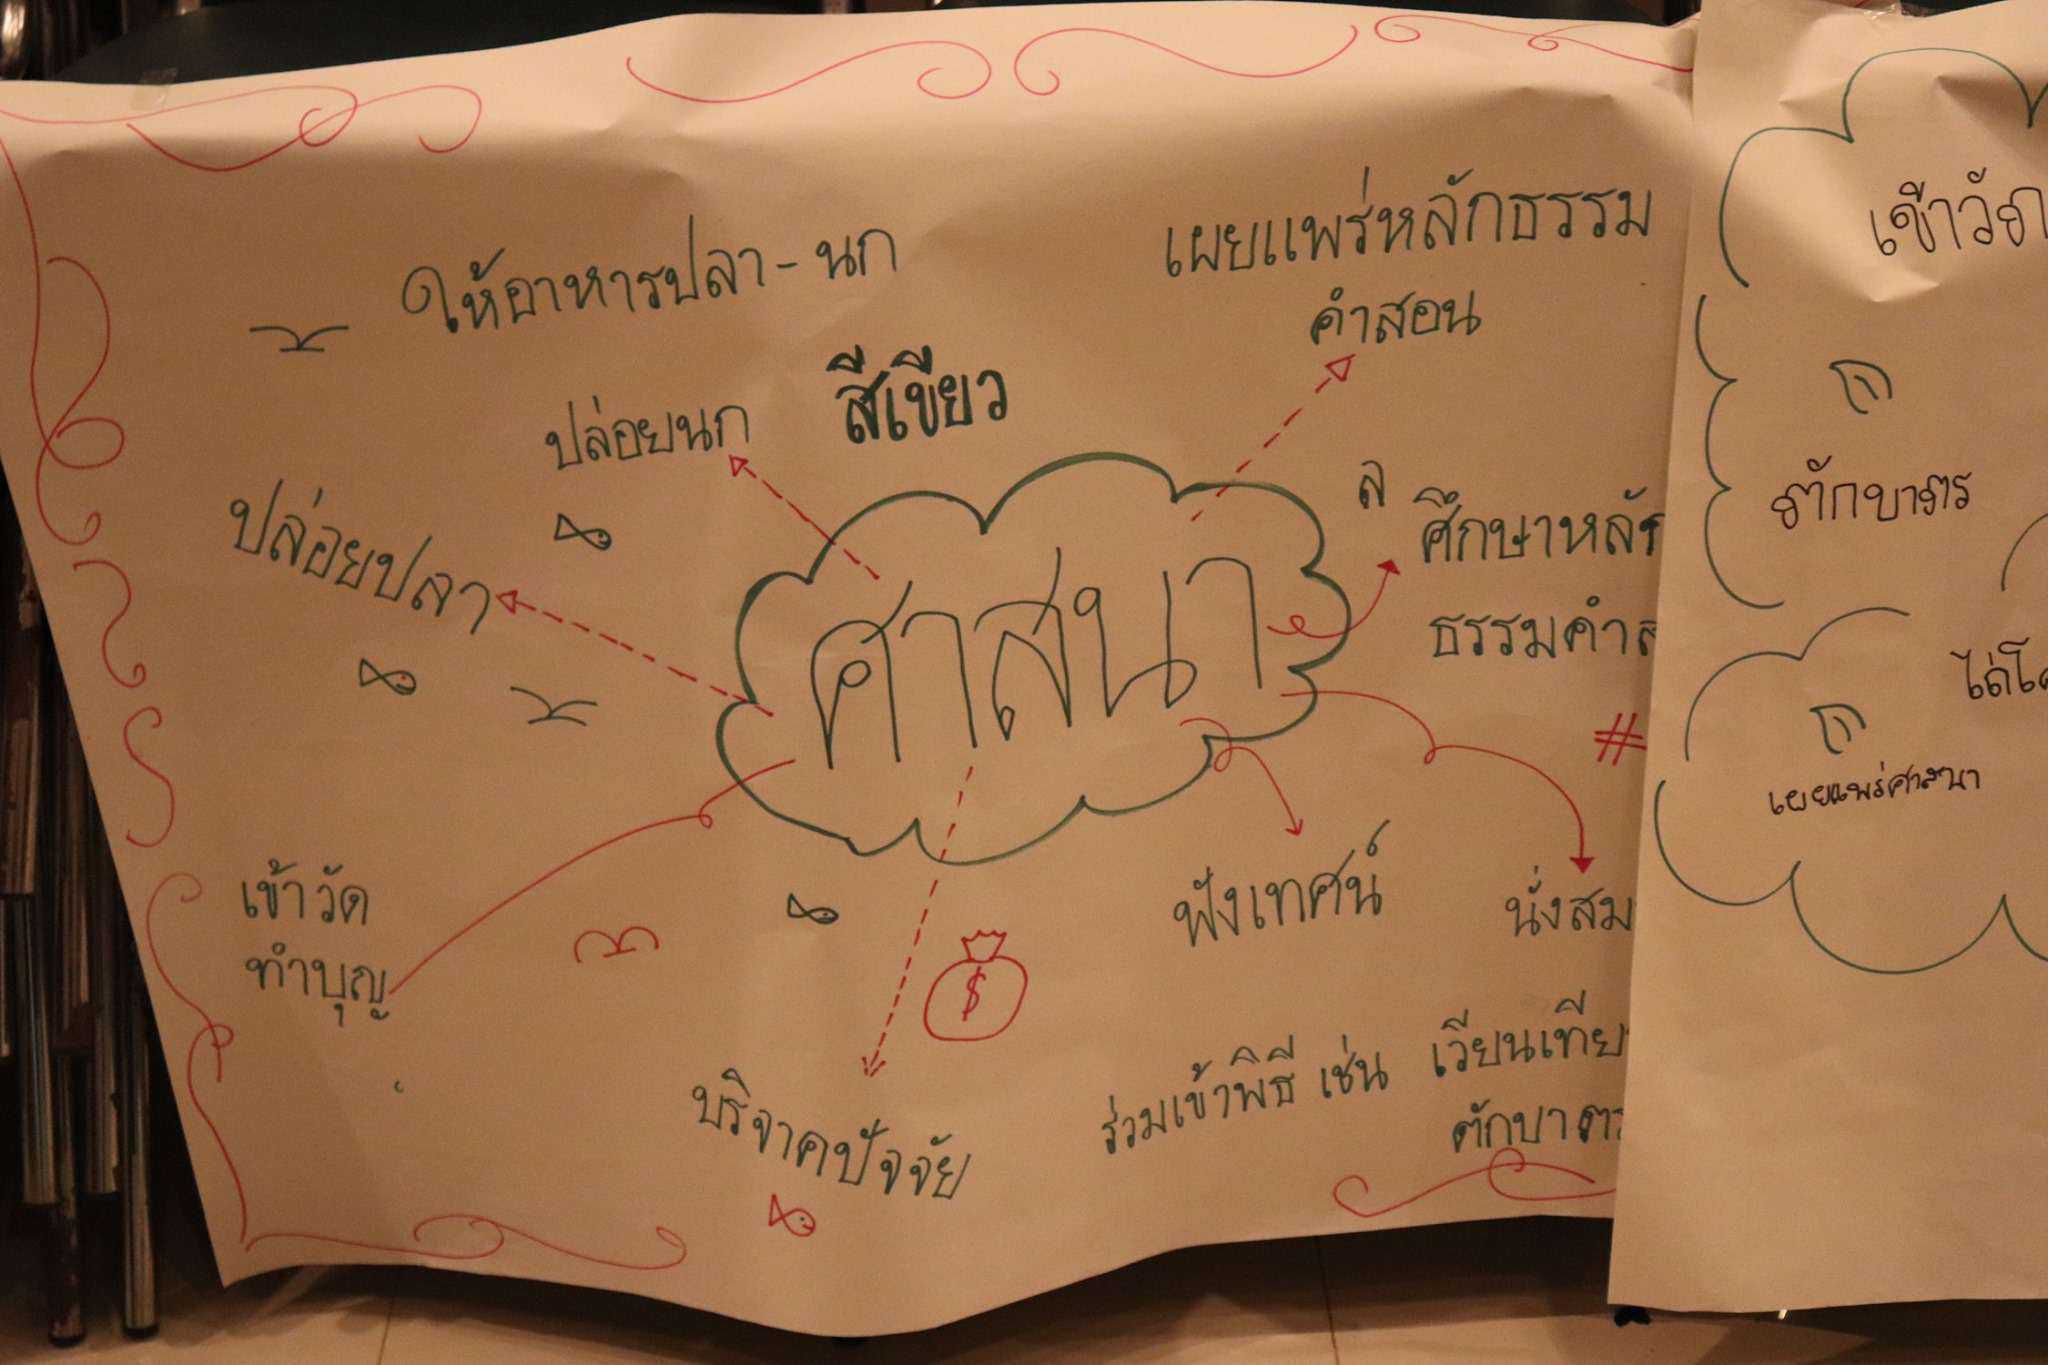 ให้อาหารปลา - นก
เผยแพร่หลักธรรม
คำสอน
สีเขียว
ปล่อยนก
ปล่อยปลา
ศาสนา
ล
ศึกษาหลัก
ธรรมคำส
#
เข้าวัด
ทำบุญ
$
ฟังเทศน์
นั่งสม
บริจาคปัจจัย
ร่วมเข้าพิธี เช่น เวียนเทีย
ตักบาตร
เข้าวั
ตักบาตร
ไถ่โค
เผยแพร่ศาสนา